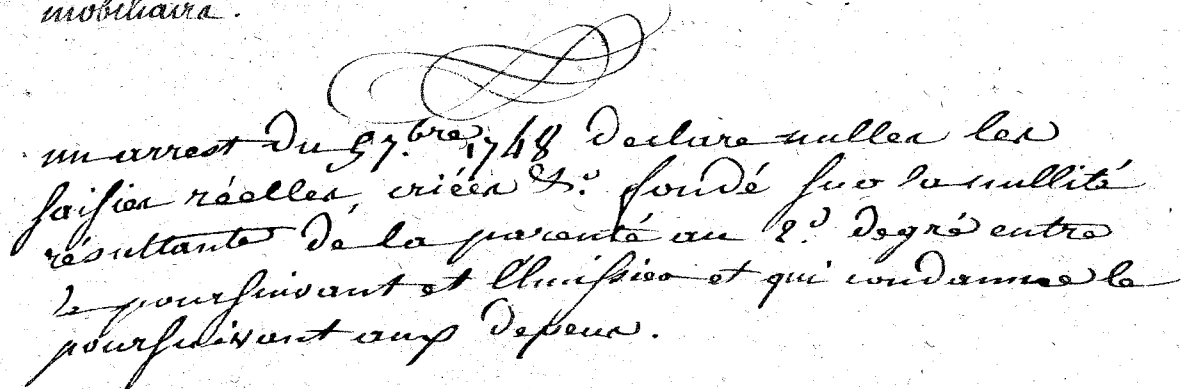 mobiliaire.
un arrest du 5 7.bre 1748 declare nulles les
saisies réelles, criées &.a fondé sur la nullité
résultante de la parenté au 2.d degré entre
le poursuivant et l'huissier et qui condamne le
poursuivant aux depens.